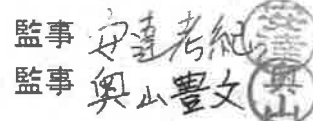 監事 安達考紀 安達
監事 奥山豊文 奥山